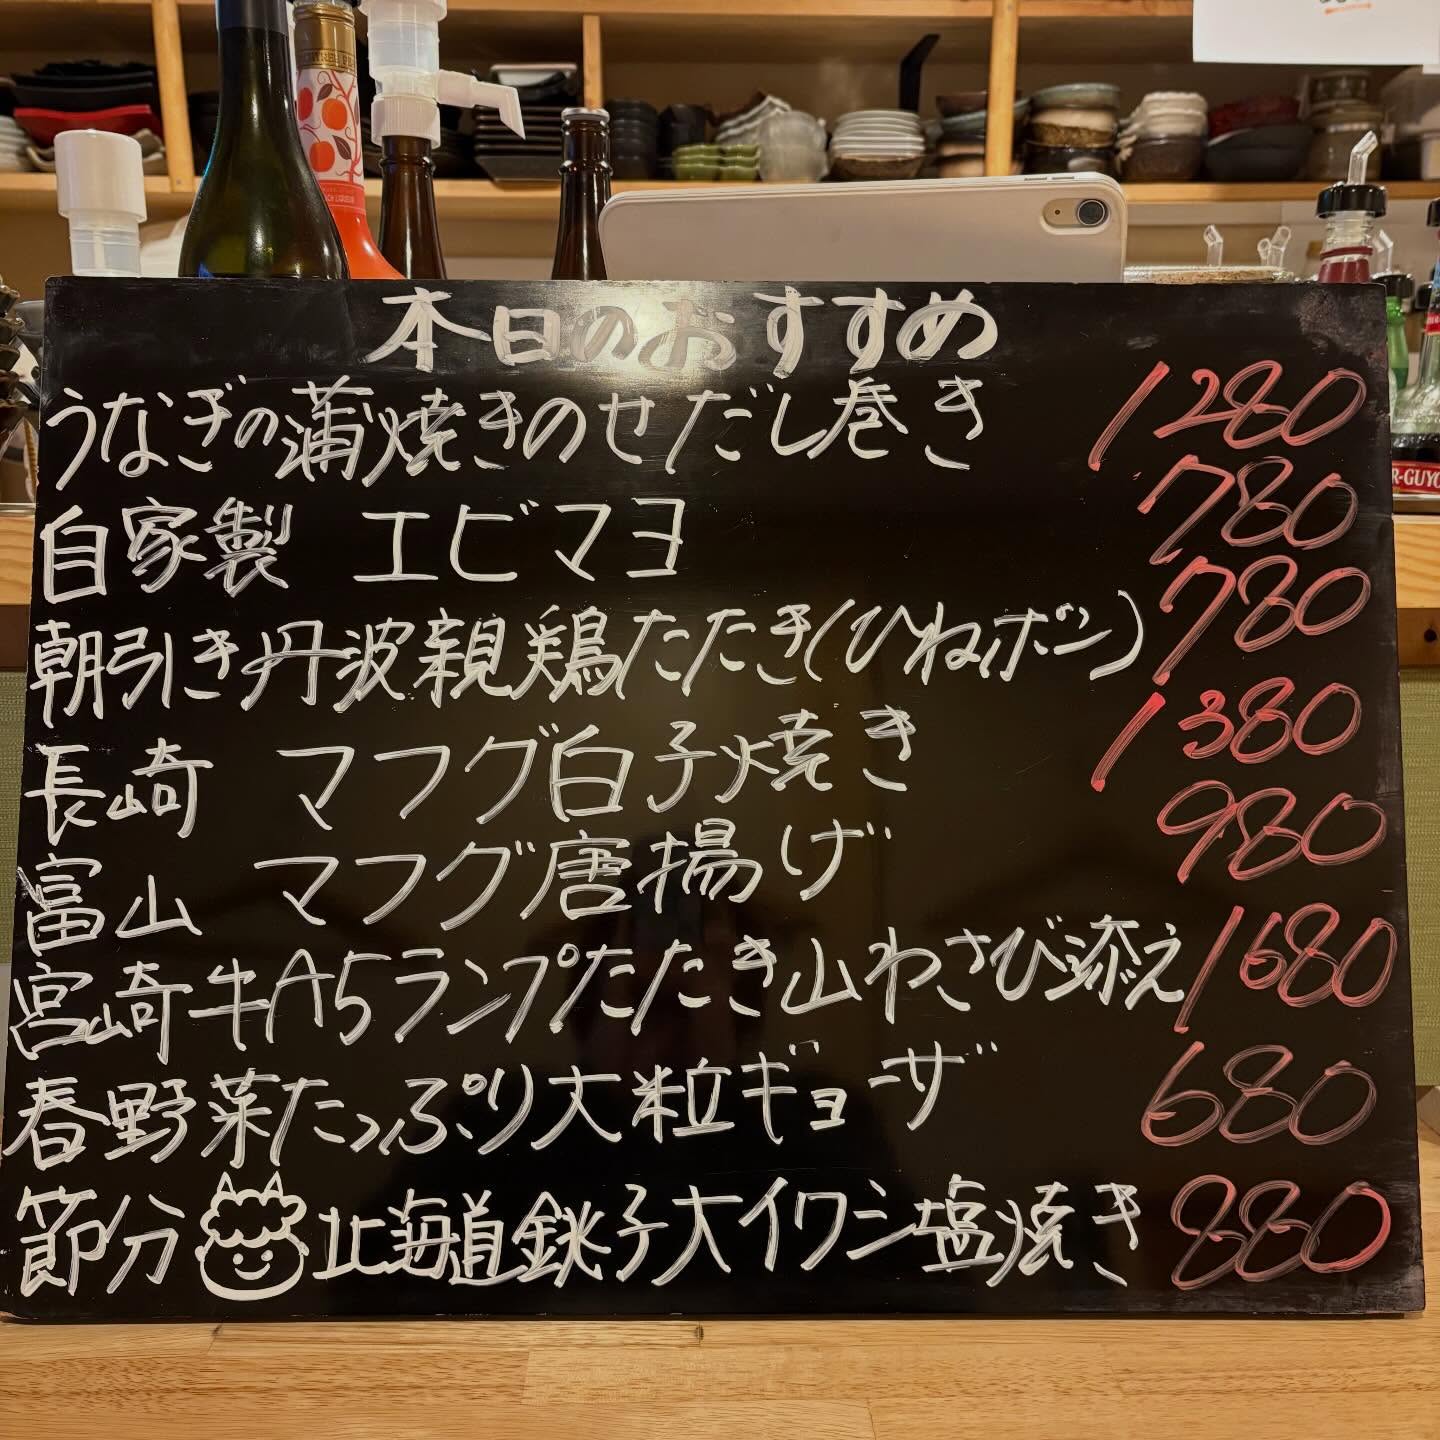 本日のおすすめ
うなぎの蒲焼きのせだし巻き 1280
自家製 エビマヨ 780
朝引き丹波親鶏たたき(ひねポン) 780
長崎 マフグ白子焼き 1380
富山 マフグ唐揚げ 980
宮崎牛A5ランプたたき山わさび添え 1680
春野菜たっぷり大粒ギョーザ 680
節分 北海道銚子大イワシ塩焼き 880
R-GUYO